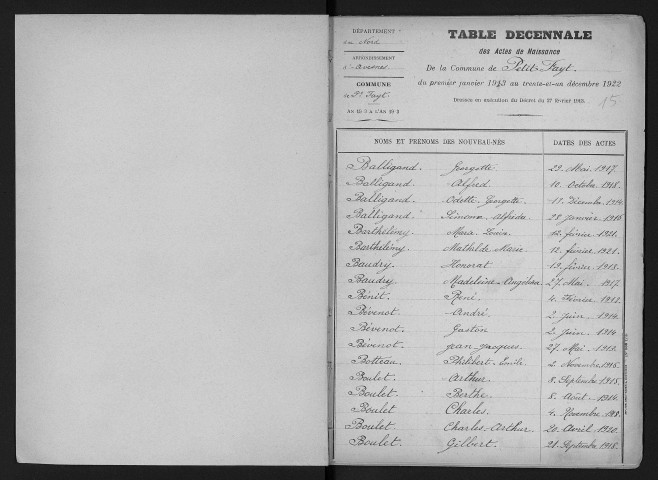 DÉPARTEMENT
du Nord
ARRONDISSEMENT
d'Avesnes
COMMUNE
de Pt Fayt
TABLE DECENNALE
des Actes de Naissance
De la Commune de Petit-Fayt.
du premier janvier 1913 au trente-et-un décembre 1922
Dressée en exécution du Décret du
15
NOMS ET PRÉNOMS DES NOUVEAU-NÉS DATES DES ACTES
Balligand. Georgette 29 Mai 1917.
Balligand Alfred 10 Octobre 1918.
Balligand. Odette Georgette 11 Décembre 1914.
Balligand Alfreda 28 janvier 1916
Barthélemy Maria Louise 12 février 1921.
Barthélemy Mathilde Marie 12 février 1921.
Baudry Honorat 13 février 1913.
Baudry Madeleine Angélina 27 Mai 1917.
Bénit. René 4 Février 1913.
Bévenot André 2 juin 1914.
Bévenot. Gaston 2 juin 1914
Bévenot Jean-Jacques 27 Mai 1913.
Botteau Philibert Emile 2 Novembre 1915.
Boulet. Arthur 8 Septembre 1915.
Boulet Berthe 8 Août 1914.
Boulet Charles. 4 Novembre
Boulet Charles-Arthur 20 Avril 1920.
Boulet Gilbert 21 Septembre 1918.